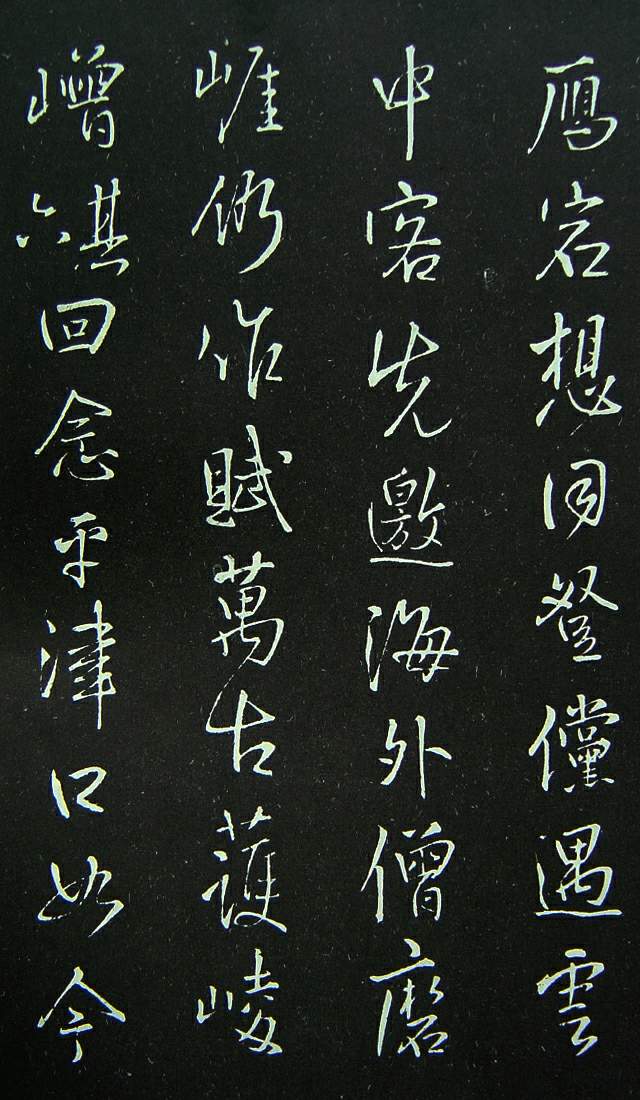 雁岩想同登儻遇雲
中客先邀海外僧磨
崖仍作賦萬古護崚
嶒其六回念平津口如今